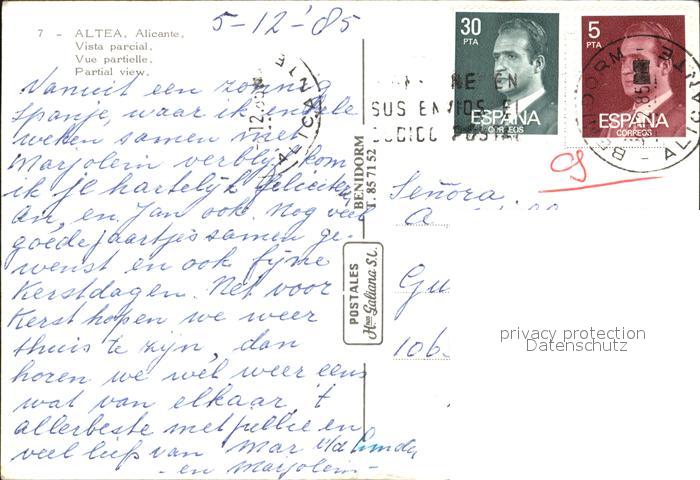 5-12-'85
7 - ALTEA. Alicante.
Vista parcial.
Vue partielle.
Partial view.
Vanuit een zonnig
spanje, waar ik enkele
weken samen met
Marjolein verblijf, kom
ik je hartelijk feliciteren
An, en Jan ook. Nog veel
goede jaartjes samen ge-
wenst en ook fijne
Kerstdagen. Net voor
Kerst hopen we weer
thuis te zijn, dan
horen we wel weer eens
wat van elkaar, 't
allerbeste met jullie en
veel liefs van Mar v/d
- en Marjolein -
BENIDORM
T. 85 71 52
POSTALES
Hnos Galiana S.L.
30
PTA
ESPAÑA
CORREOS
5
PTA
ESPAÑA
CORREOS
EN
SUS ENVIOS EL
CODIGO POSTAL
BENIDORM
ALICANTE
Señora
A
Gu
106
privacy protection
Datenschutz